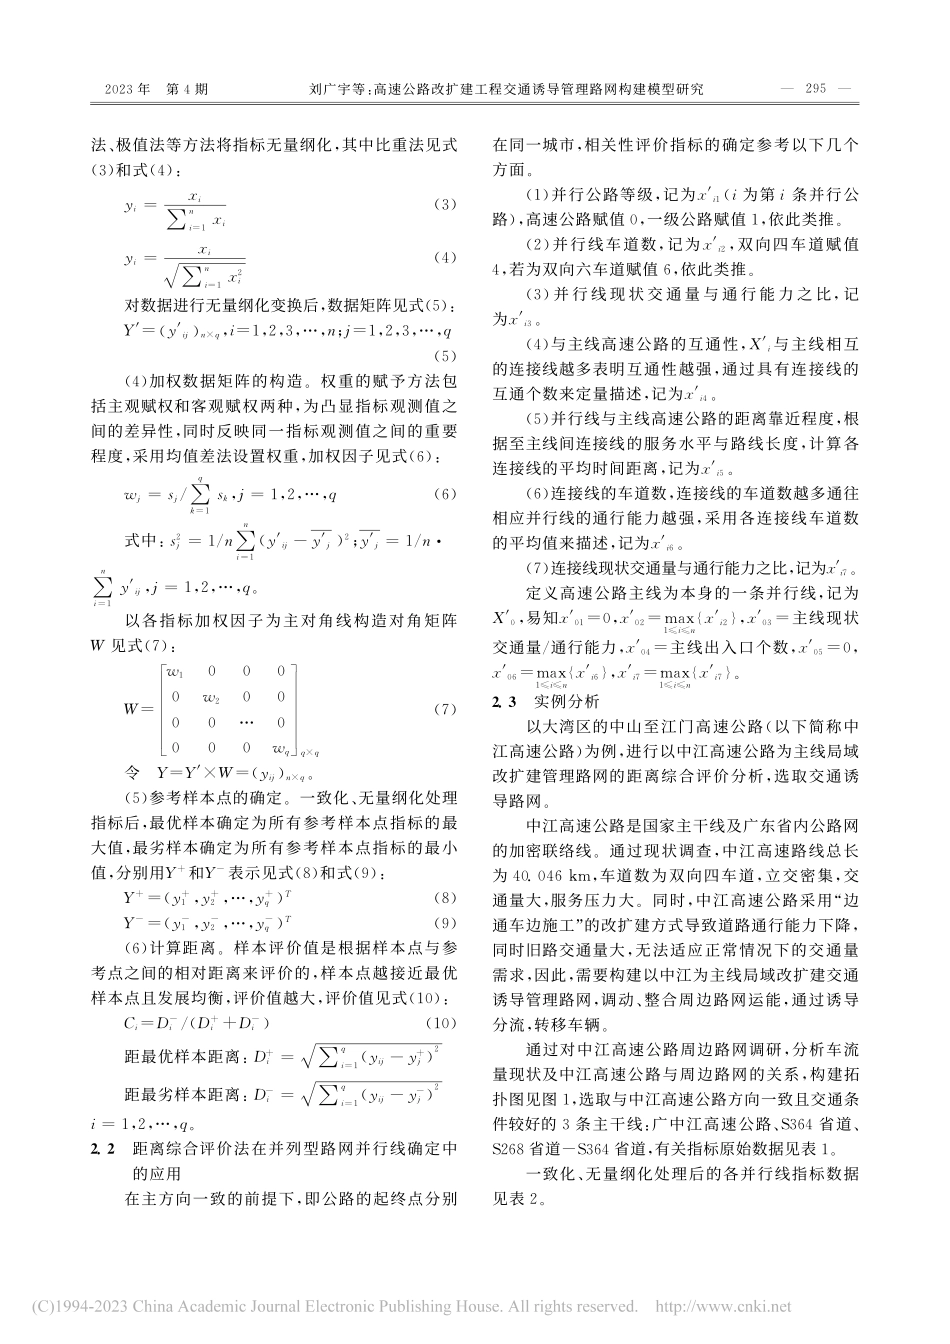 2023年 第4期 刘广宇等:高速公路改扩建工程交通诱导管理路网构建模型研究 — 295 —
法、极值法等方法将指标无量纲化,其中比重法见式
(3)和式(4):
y_i = x_i / ∑_{i=1}^{n} x_i (3)
y_i = x_i / √(∑_{i=1}^{n} x_i^2) (4)
对数据进行无量纲化变换后,数据矩阵见式(5):
Y′=(y′_{ij})_{n×q},i=1,2,3,…,n;j=1,2,3,…,q
(5)
(4)加权数据矩阵的构造。权重的赋予方法包
括主观赋权和客观赋权两种,为凸显指标观测值之
间的差异性,同时反映同一指标观测值之间的重要
程度,采用均值差法设置权重,加权因子见式(6):
w_j = s_j/∑_{k=1}^{q} s_k,j = 1,2,…,q (6)
式中:s_j^2 = 1/n∑_{i=1}^{n}(y′_{ij} − \overline{y′_j})^2;\overline{y′_j} = 1/n •
∑_{i=1}^{n} y′_{ij},j = 1,2,…,q。
以各指标加权因子为主对角线构造对角矩阵
W 见式(7):
w_1 0 0 0
0 w_2 0 0
W= (7)
0 0 … 0
0 0 0 w_q q×q
令 Y=Y′×W=(y_{ij})_{n×q}。
(5)参考样本点的确定。一致化、无量纲化处理
指标后,最优样本确定为所有参考样本点指标的最
大值,最劣样本确定为所有参考样本点指标的最小
值,分别用Y^+和Y^−表示见式(8)和式(9):
Y^+=(y_1^+,y_2^+,…,y_q^+)^T (8)
Y^−=(y_1^−,y_2^−,…,y_q^−)^T (9)
(6)计算距离。样本评价值是根据样本点与参
考点之间的相对距离来评价的,样本点越接近最优
样本点且发展均衡,评价值越大,评价值见式(10):
C_i=D_i^−/(D_i^++D_i^−) (10)
距最优样本距离:D_i^+ = √(∑_{i=1}^{q}(y_{ij} − y_j^+)^2)
距最劣样本距离:D_i^− = √(∑_{i=1}^{q}(y_{ij} − y_j^−)^2)
i = 1,2,…,q。
2.2 距离综合评价法在并列型路网并行线确定中
的应用
在主方向一致的前提下,即公路的起终点分别
在同一城市,相关性评价指标的确定参考以下几个
方面。
(1)并行公路等级,记为x′_{i1}(i 为第i 条并行公
路),高速公路赋值0,一级公路赋值1,依此类推。
(2)并行线车道数,记为x′_{i2},双向四车道赋值
4,若为双向六车道赋值6,依此类推。
(3)并行线现状交通量与通行能力之比,记
为x′_{i3}。
(4)与主线高速公路的互通性,X′_i与主线相互
的连接线越多表明互通性越强,通过具有连接线的
互通个数来定量描述,记为x′_{i4}。
(5)并行线与主线高速公路的距离靠近程度,根
据至主线间连接线的服务水平与路线长度,计算各
连接线的平均时间距离,记为x′_{i5}。
(6)连接线的车道数,连接线的车道数越多通往
相应并行线的通行能力越强,采用各连接线车道数
的平均值来描述,记为x′_{i6}。
(7)连接线现状交通量与通行能力之比,记为x′_{i7}。
定义高速公路主线为本身的一条并行线,记为
X′_0,易知x′_{01}=0,x′_{02}=max_{1≤i≤n}{x′_{i2}},x′_{03}=主线现状
交通量/通行能力,x′_{04}=主线出入口个数,x′_{05}=0,
x′_{06}=max_{1≤i≤n}{x′_{i6}},x′_{i7}=max_{1≤i≤n}{x′_{i7}}。
2.3 实例分析
以大湾区的中山至江门高速公路(以下简称中
江高速公路)为例,进行以中江高速公路为主线局域
改扩建管理路网的距离综合评价分析,选取交通诱
导路网。
中江高速公路是国家主干线及广东省内公路网
的加密联络线。通过现状调查,中江高速路线总长
为40.046 km,车道数为双向四车道,立交密集,交
通量大,服务压力大。同时,中江高速公路采用“边
通车边施工”的改扩建方式导致道路通行能力下降,
同时旧路交通量大,无法适应正常情况下的交通量
需求,因此,需要构建以中江为主线局域改扩建交通
诱导管理路网,调动、整合周边路网运能,通过诱导
分流,转移车辆。
通过对中江高速公路周边路网调研,分析车流
量现状及中江高速公路与周边路网的关系,构建拓
扑图见图1,选取与中江高速公路方向一致且交通条
件较好的3条主干线:广中江高速公路、S364省道、
S268省道－S364省道,有关指标原始数据见表1。
一致化、无量纲化处理后的各并行线指标数据
见表2。
(C)1994-2023 China Academic Journal Electronic Publishing House. All rights reserved. http://www.cnki.net